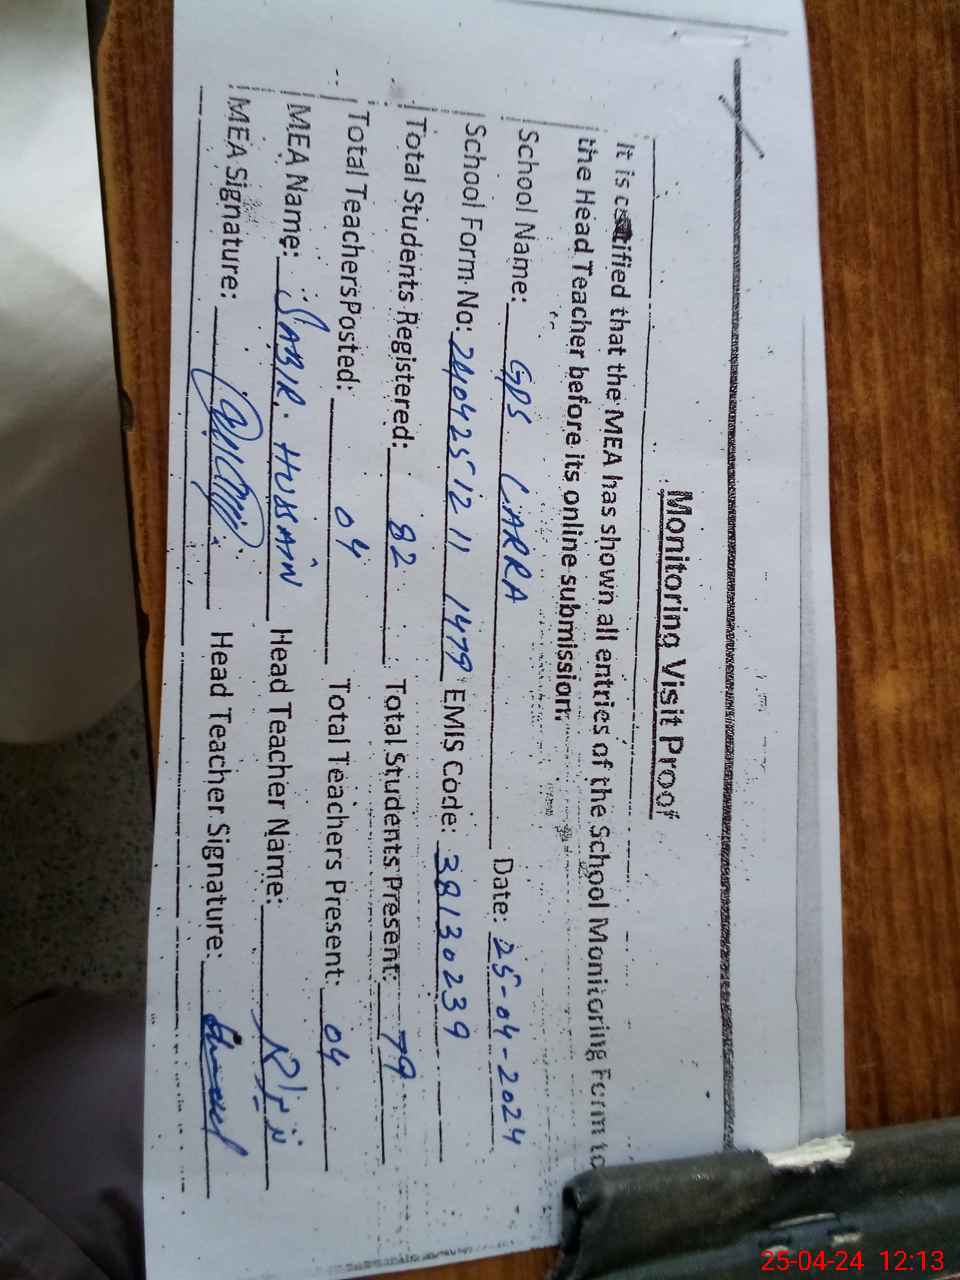 Monitoring Visit Proof
It is certified that the MEA has shown all entries of the School Monitoring Form to
the Head Teacher before its online submission.
School Name: GPS CARRA Date: 25-04-2024
School Form No: 240425 12 11 1479 EMIS Code: 38130239
Total Students Registered: 82 Total Students Present: 79
Total Teachers Posted: 04 Total Teachers Present: 04
MEA Name: SABIR. HUSSAIN Head Teacher Name:
MEA Signature: Head Teacher Signature:
25-04-24 12:13